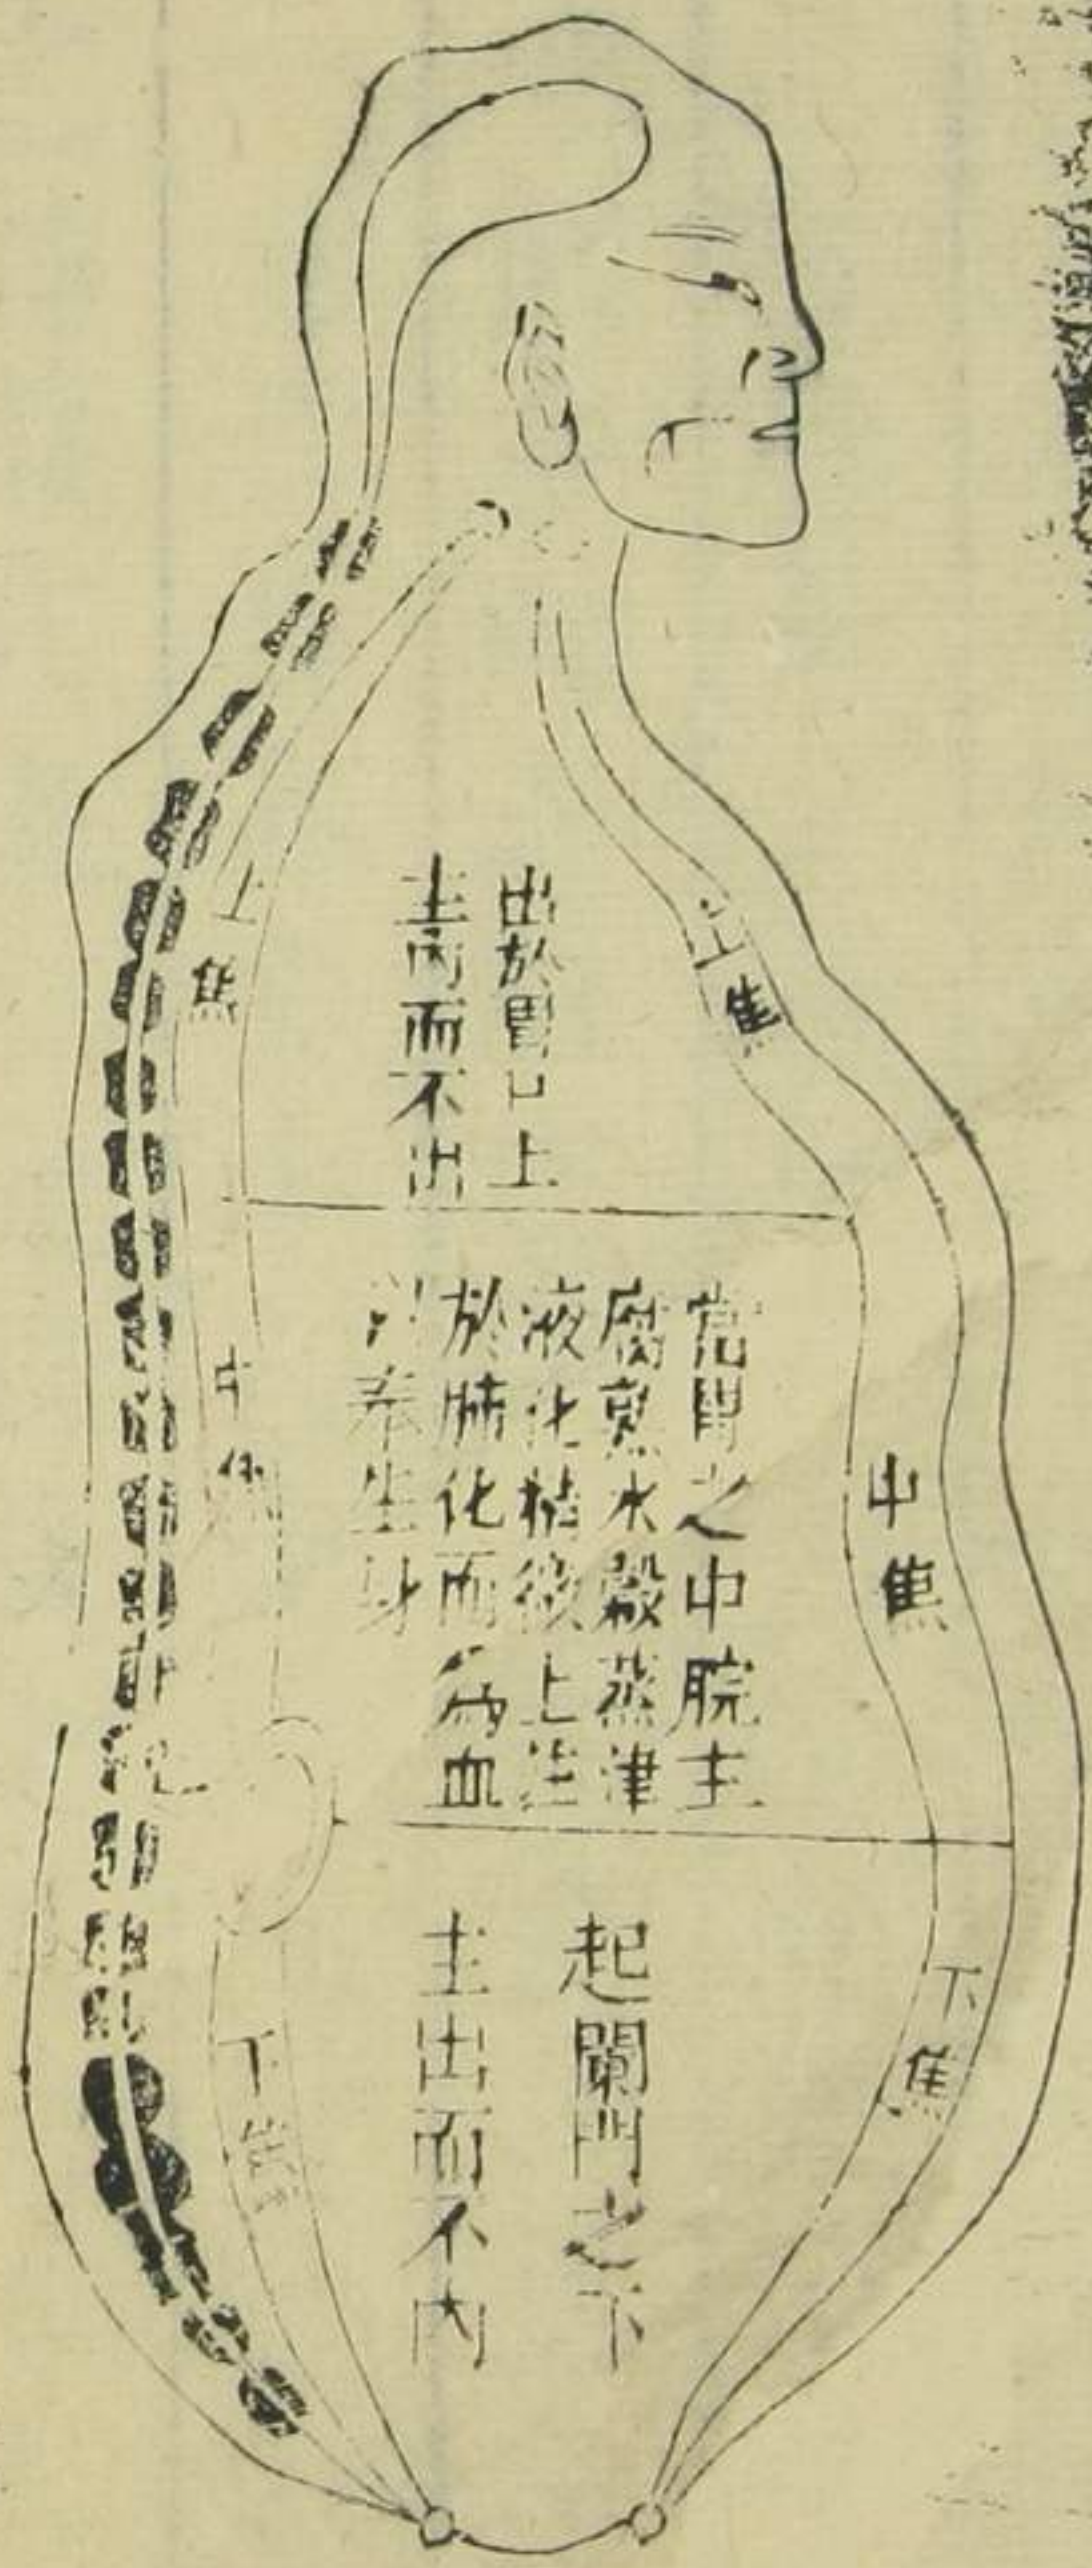 上焦
出於胃口上
主內而不出
上焦
中焦
當胃之中脘主
腐熟水穀蒸津
液化精微上注
於肺化而為血
以奉生身
中焦
下焦
起闌門之下
主出而不內
下焦